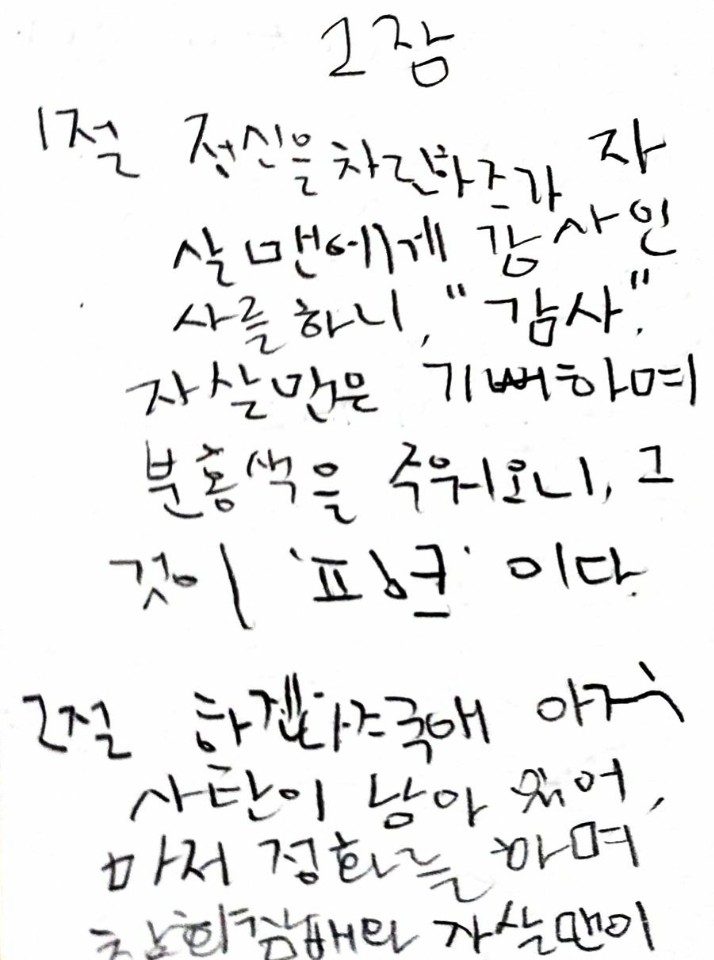 그장
1절 정신을 차린 하즈가 자
살맨에게 감사인
사를 하니, "감사".
자살맨은 기뻐하며
분홍색을 주워오니, 그
것이 '핑크' 이다.
2절 아직
사탄이 남아 있어,
마저 정화를 하며
자살맨이